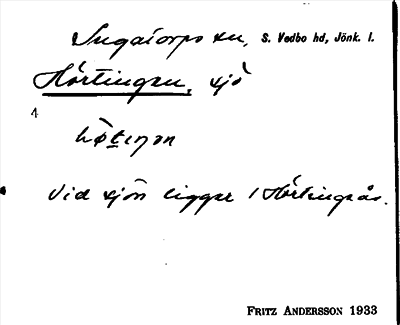 Ingatorps sn, S. Vedbo hd, Jönk. l.
Hörtingen, sjö
1
Vid sjön ligger 1 Hörtingsås.
FRITZ ANDERSSON 1933